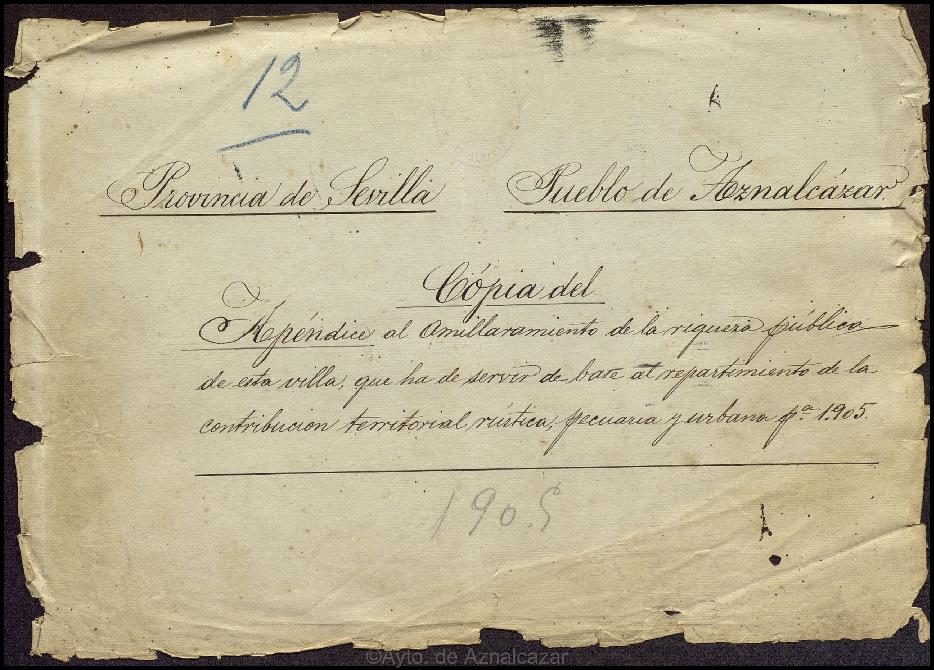 12
Provincia de Sevilla Pueblo de Aznalcázar.
Cópia del
Apéndice al Amillaramiento de la riqueza pública
de esta villa, que ha de servir de base al repartimiento de la
contribucion territorial, rústica, pecuaria y urbana pª 1.905.
190.5
©Ayto. de Aznalcazar